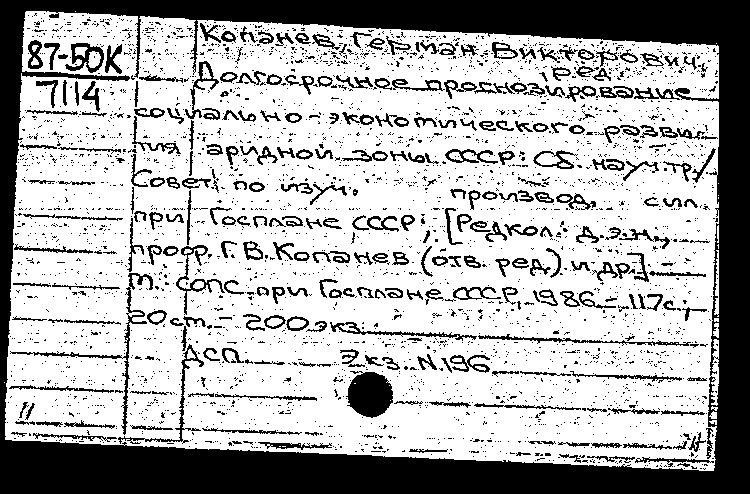 Копанев, Герман Викторович,
ред.
87-50К
7114
Долгосрочное прогнозирование
социально-экономического разви-
тия аридной зоны СССР: Сб. науч. тр./
Совет по изуч. производ. сил
при Госплане СССР; [Редкол.: д.э.н.,
проф. Г.В. Копанев (отв. ред.) и др.]. -
М.: СОПС при Госплане СССР, 1986. - 117с;
20 см. - 200 экз.
ДСП. Экз. N.196